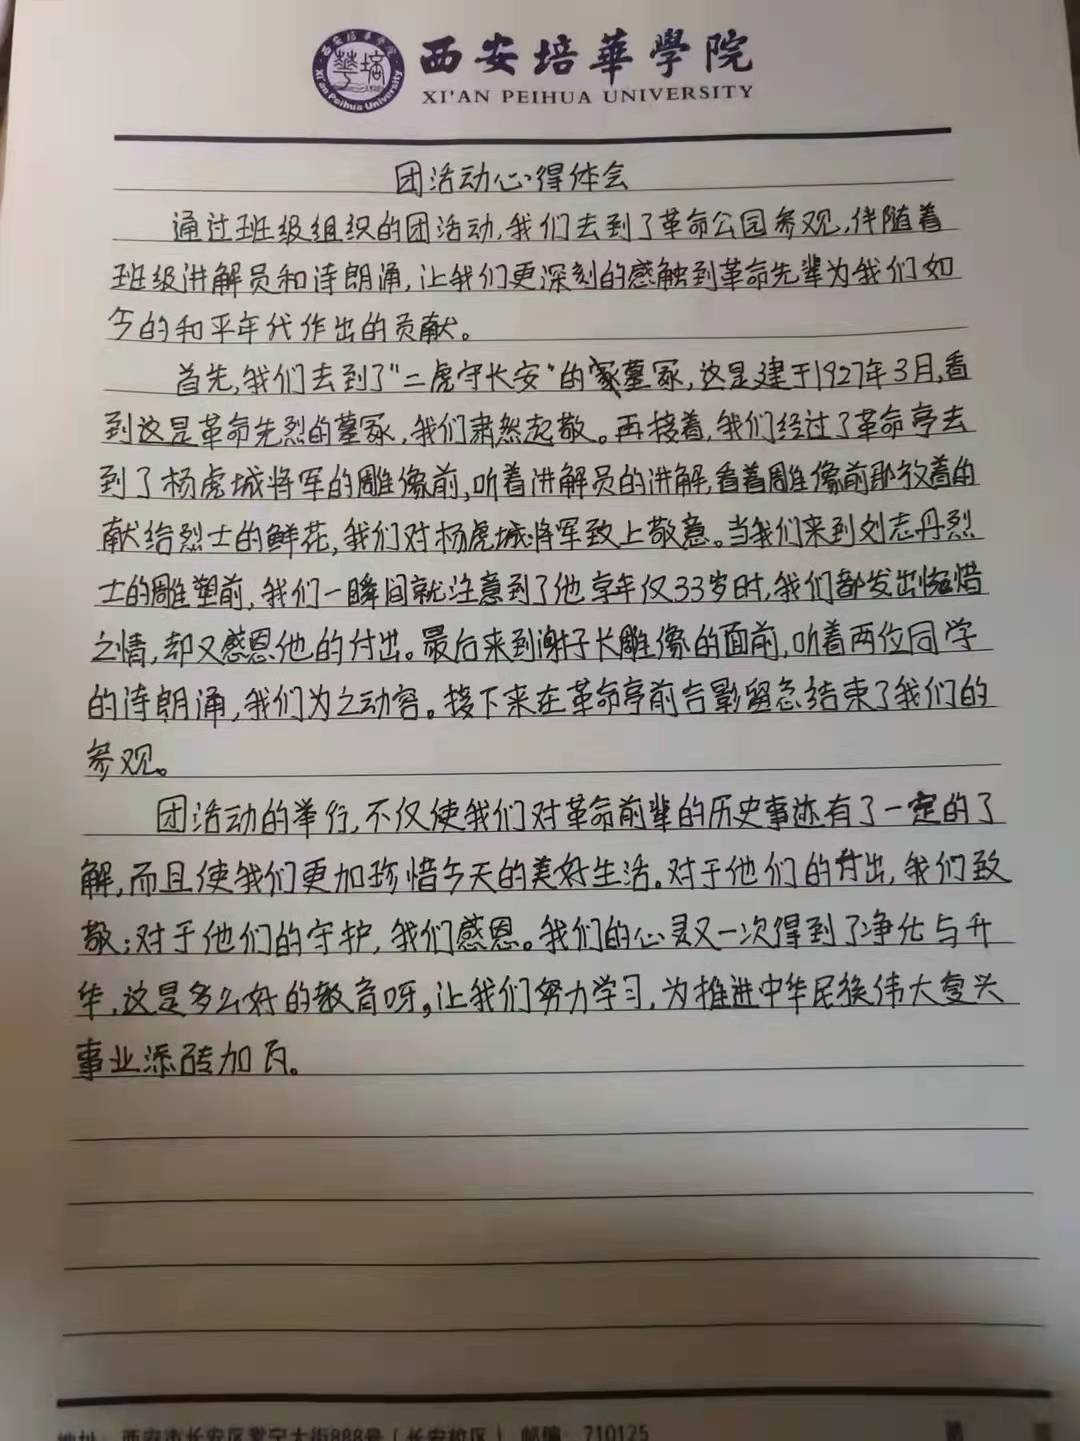 西安培華學院
XI'AN PEIHUA UNIVERSITY
西安培華学院
Xi'an Peihua University
团活动心得体会
通过班级组织的团活动,我们去到了革命公园参观,伴随着
班级讲解员和诗朗涌,让我们更深刻的感触到革命先辈为我们如
今的和平年代作出的贡献。
首先,我们去到了"二虎守长安"的冢墓冢,这是建于1927年3月,看
到这是革命先烈的墓冢,我们肃然起敬。再接着,我们经过了革命亭去
到了杨虎城将军的雕像前,听着讲解员的讲解,看着雕像前那放着的
献给烈士的鲜花,我们对杨虎城将军致上敬意。当我们来到刘志丹烈
士的雕塑前,我们一瞬间就注意到了他享年仅33岁时,我们都发出惋惜
之情,却又感恩他的付出。最后来到谢子长雕像的面前,听着两位同学
的诗朗涌,我们为之动容。接下来在革命亭前合影留念结束了我们的
参观。
团活动的举行,不仅使我们对革命前辈的历史事迹有了一定的了
解,而且使我们更加珍惜今天的美好生活。对于他们的付出,我们致
敬;对于他们的守护,我们感恩。我们的心灵又一次得到了净化与升
华,这是多么好的教育呀,让我们努力学习,为推进中华民族伟大复兴
事业添砖加瓦。
地址:西安市长安区常宁大街888号(长安校区) 邮编:710125